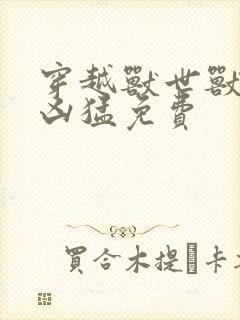 穿越獸世獸
凶猛免費
買合木提卡